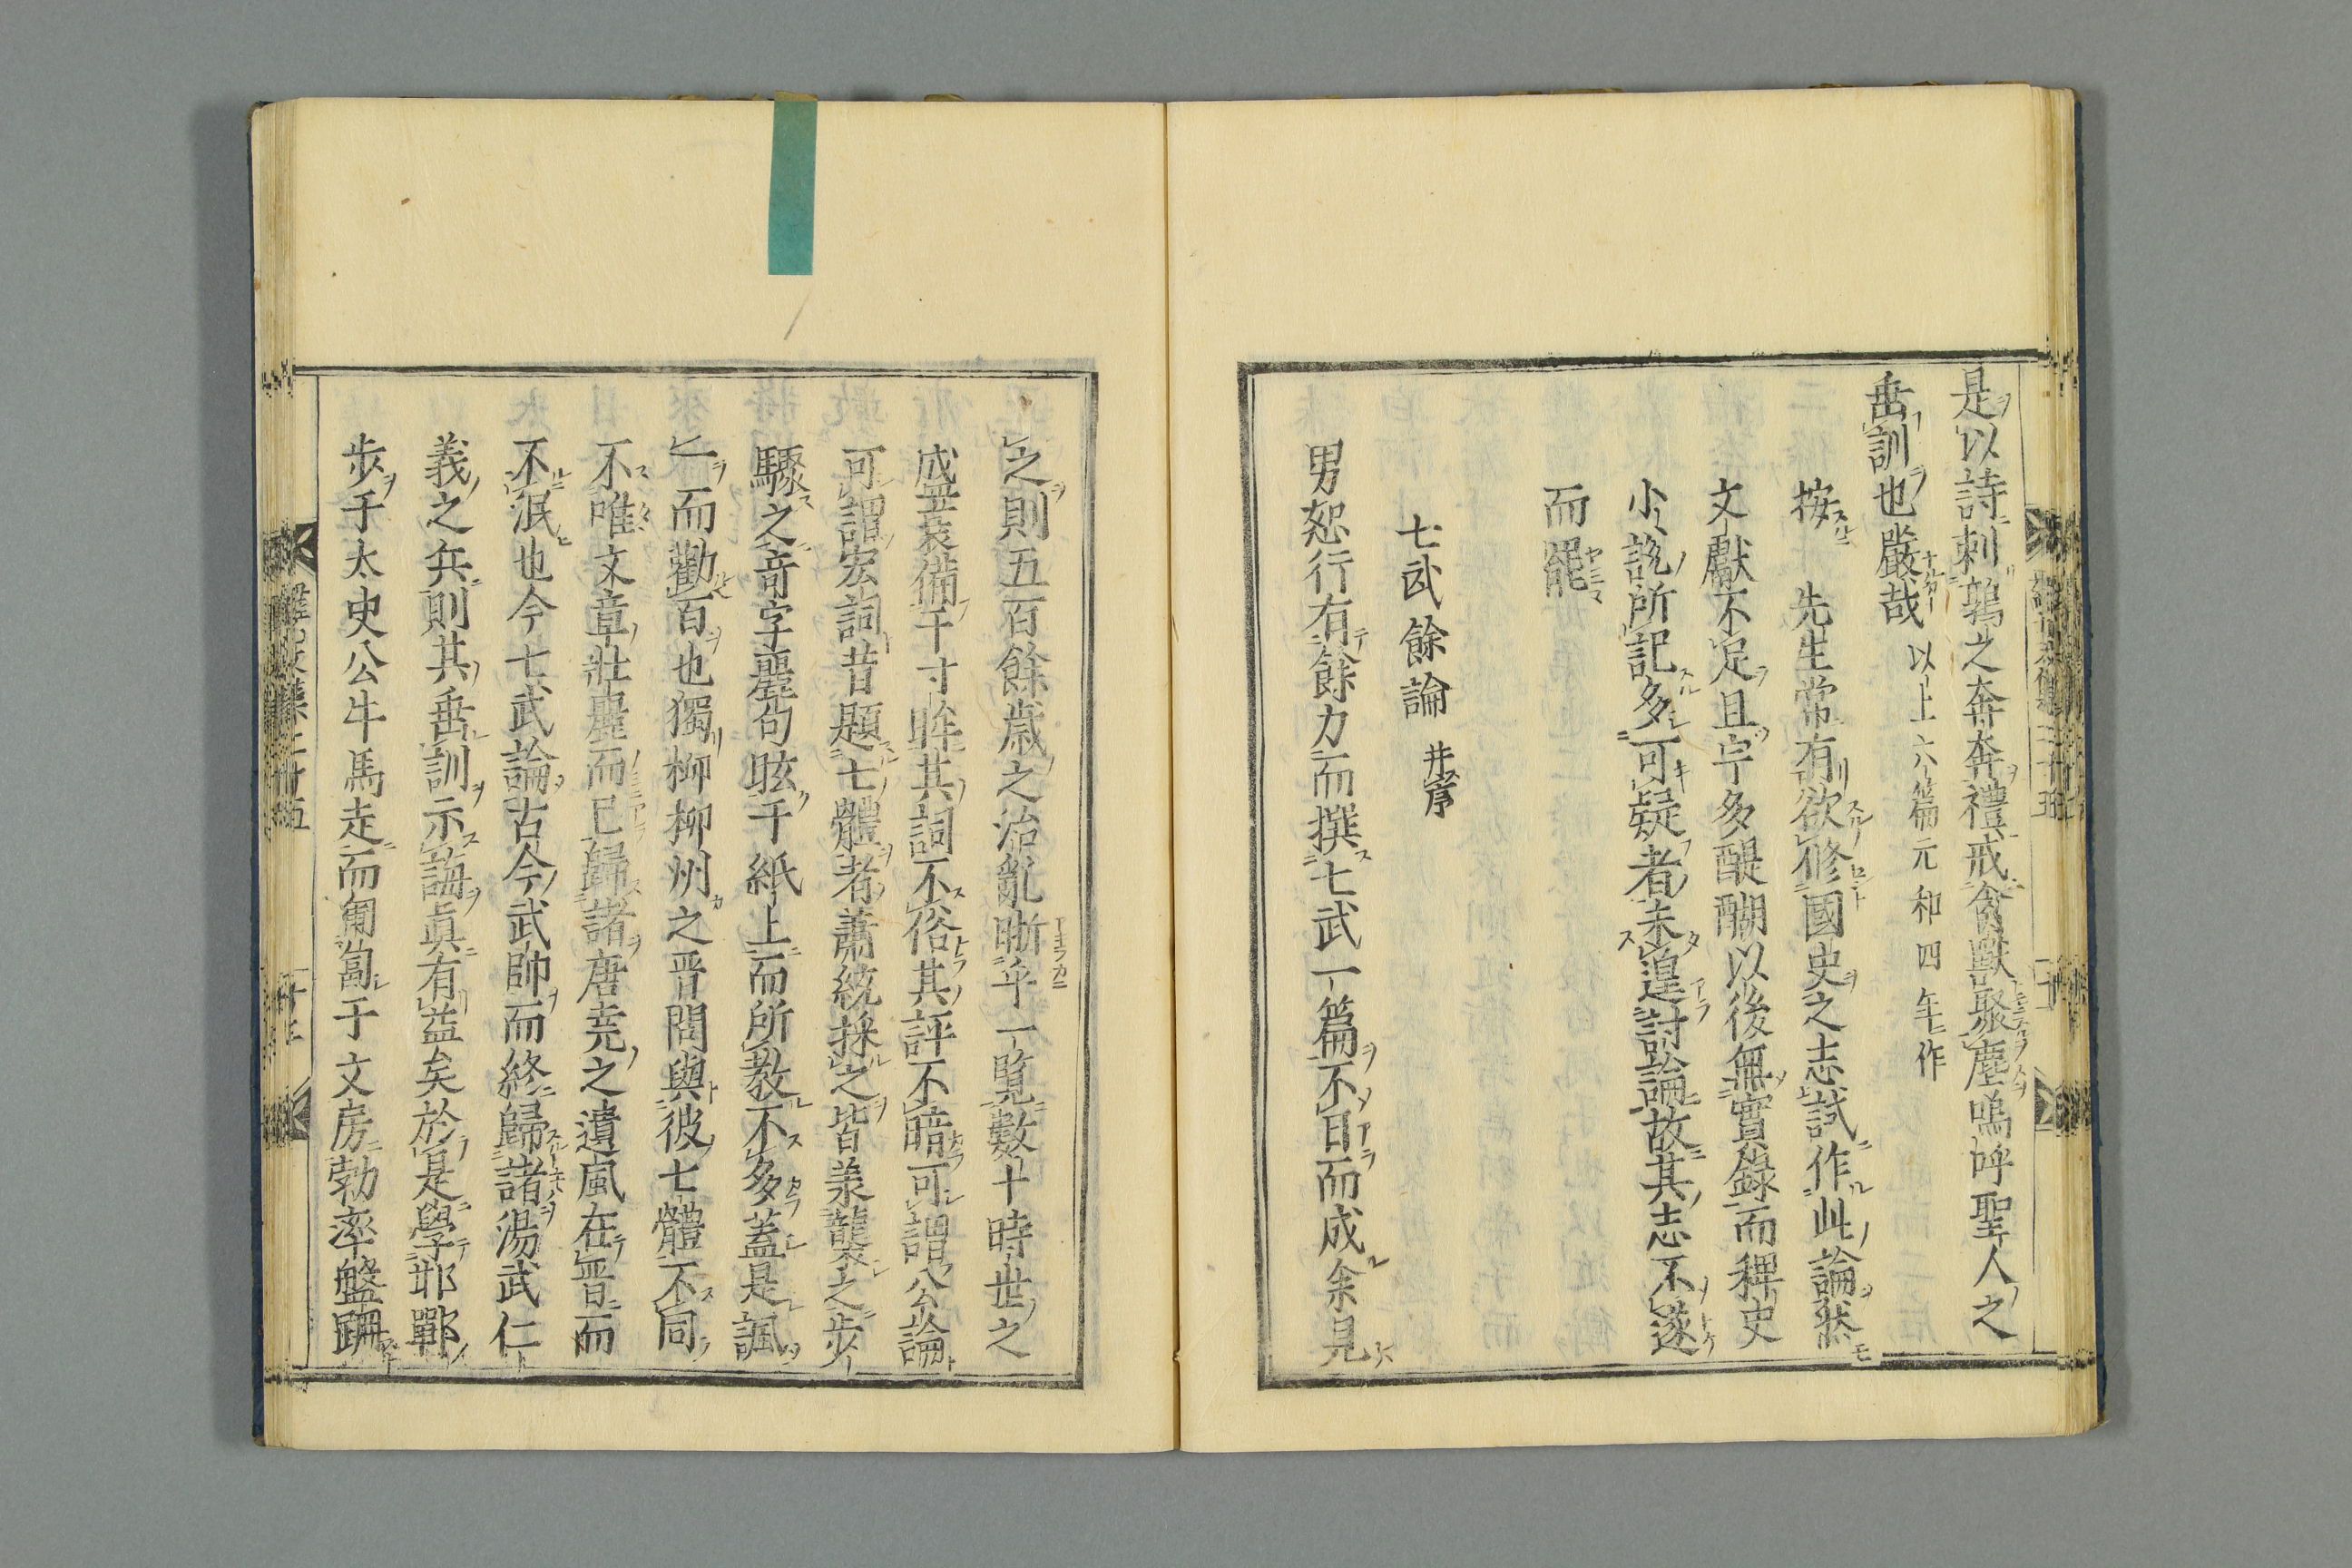 是以詩刺鶉之奔奔禮戒禽獸聚麀嗚呼聖人之
垂訓也嚴哉 以上六篇元和四年作
按 先生常有欲修國史之志試作此論然
文獻不足且宇多醍醐以後無實錄而稗史
小說所記多可疑者未遑討論故其志不遂
而罷
七武餘論 并序
男恕行有餘力而撰七武一篇不日而成余見
之則五百餘歲之治亂晰乎一覧數十時世之
盛衰備于寸眸其詞不俗其評不暗可謂公論
可謂宏詞昔題七體者蕭統採之皆羕襲之步
驟之奇字麗句眩于紙上而所教不多蓋是諷
一而勸百也獨柳柳州之晋問與彼七體不同
不唯文章壯麗而已歸諸唐堯之遺風在晋而
不泯也今七武論古今武帥而終歸諸湯武仁
義之兵則其垂訓示誨眞有益矣於是學邯鄲
步于太史公牛馬走而匍匐于文房勃窣盤跚
羅山文集二十五